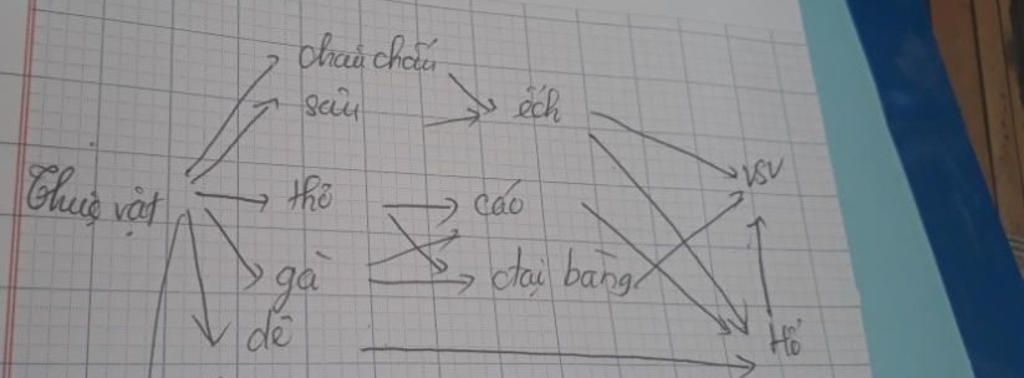 chau chấu
sâu → ếch
Thực vật → thỏ → cáo VSV
gà → đại bàng
dê → Hổ